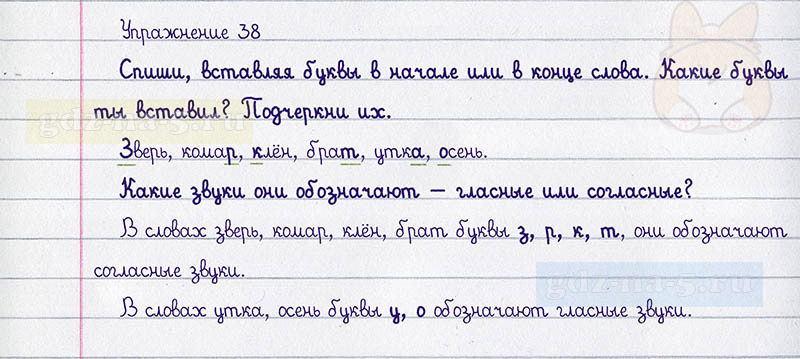 Упражнение 38
Спиши, вставляя буквы в начале или в конце слова. Какие буквы
ты вставил? Подчеркни их.
Зверь, комар, клён, брат, утка, осень.
Какие звуки они обозначают – гласные или согласные?
В словах зверь, комар, клён, брат буквы з, р, к, т, они обозначают
согласные звуки.
gdz-na-5.ru
В словах утка, осень буквы у, о обозначают гласные звуки.